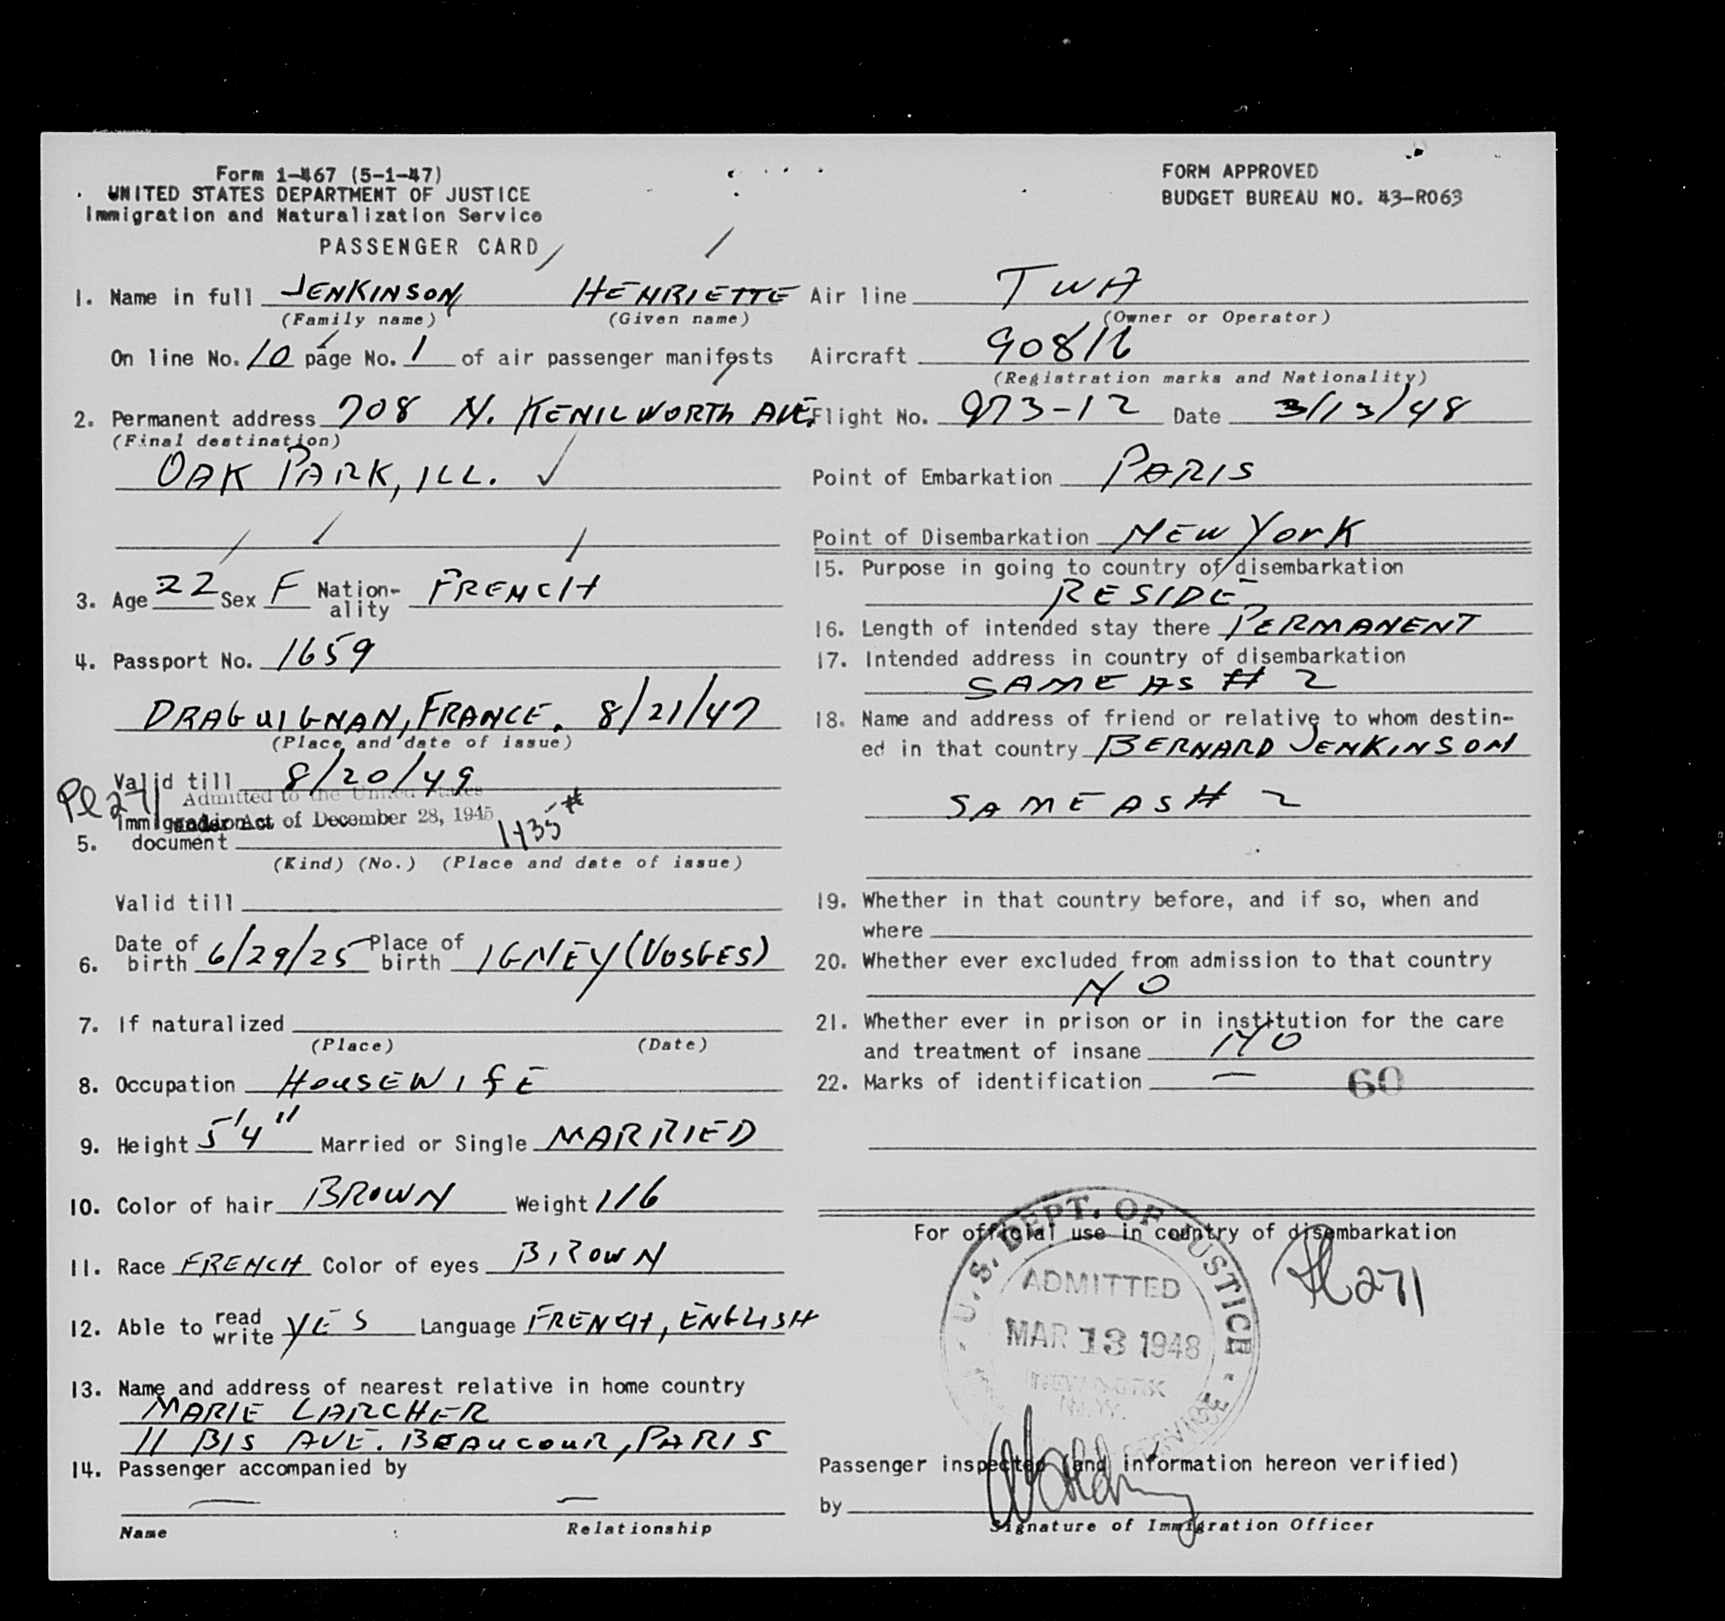 Form I-467 (5-1-47)
UNITED STATES DEPARTMENT OF JUSTICE
Immigration and Naturalization Service
PASSENGER CARD
FORM APPROVED
BUDGET BUREAU NO. 43-R063
1. Name in full JENKINSON HENRIETTE
(Family name) (Given name)
On line No. 10 page No. 1 of air passenger manifests
2. Permanent address 708 N. KENILWORTH AVE.
(Final destination)
OAK PARK, ILL.
3. Age 22 Sex F Nation-ality FRENCH
4. Passport No. 1659
DRAGUIGNAN, FRANCE. 8/21/47
(Place and date of issue)
Valid till 8/20/49
Pl 271
Admitted to the United States
under Act of December 28, 1945
5. Immigration document
(Kind) (No.) (Place and date of issue)
Valid till
6. Date of birth 6/29/25 Place of birth IGNEY (VOSGES)
7. If naturalized
(Place) (Date)
8. Occupation HOUSEWIFE
9. Height 5'4" Married or Single MARRIED
10. Color of hair BROWN Weight 116
11. Race FRENCH Color of eyes BROWN
12. Able to read write YES Language FRENCH, ENGLISH
13. Name and address of nearest relative in home country
MARIE LARCHER
11 BIS AVE. BEAUCOUR, PARIS
14. Passenger accompanied by
Name Relationship
Air line TWA
(Owner or Operator)
Aircraft
(Registration marks and Nationality)
Flight No. 973-12 Date 3/13/48
Point of Embarkation PARIS
Point of Disembarkation NEW YORK
15. Purpose in going to country of disembarkation
RESIDE
16. Length of intended stay there PERMANENT
17. Intended address in country of disembarkation
SAME AS # 2
18. Name and address of friend or relative to whom destin-
ed in that country BERNARD JENKINSON
SAME AS # 2
19. Whether in that country before, and if so, when and
where
20. Whether ever excluded from admission to that country
NO
21. Whether ever in prison or in institution for the care
and treatment of insane NO
22. Marks of identification — 60
For official use in country of disembarkation
U.S. DEPT. OF JUSTICE
ADMITTED
MAR 13 1948
NEW YORK
N.Y.
SERVICE
Pl 271
Passenger inspected (and information hereon verified)
by
Signature of Immigration Officer